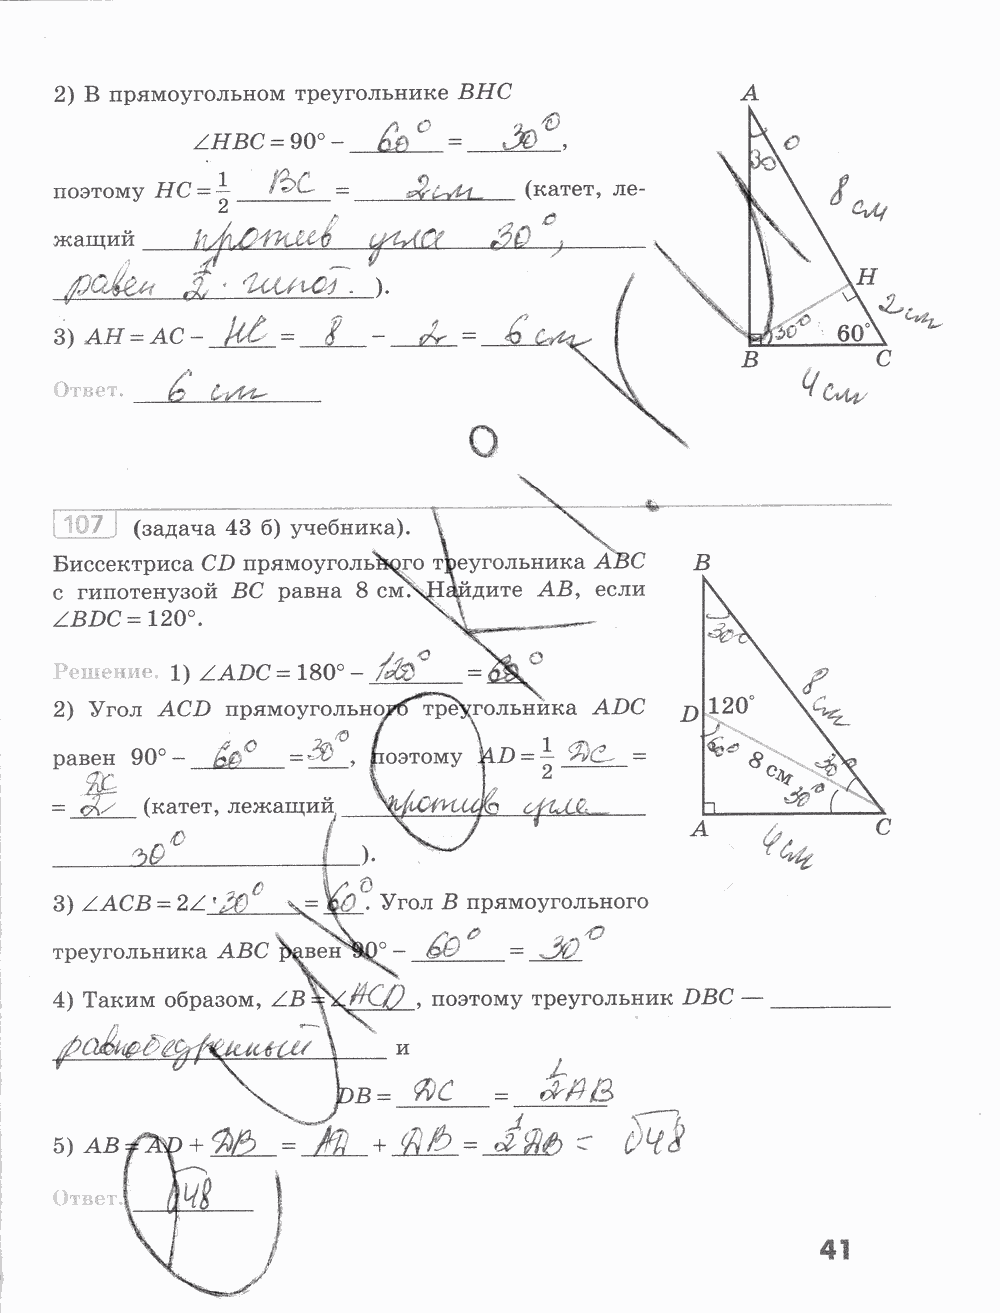 2) В прямоугольном треугольнике BHC
∠HBC = 90° – 60° = 30°,
поэтому HC = 1/2 BC = 2 см (катет, ле-
жащий против угла 30°,
равен 1/2 · гипот. ).
3) AH = AC – HC = 8 – 2 = 6 см
Ответ. 6 см
A
30°
8 см
H
2 см
30°
60°
B
C
4 см
107 (задача 43 б) учебника).
Биссектриса CD прямоугольного треугольника ABC
с гипотенузой BC равна 8 см. Найдите AB, если
∠BDC = 120°.
Решение. 1) ∠ADC = 180° – 120° = 60°
2) Угол ACD прямоугольного треугольника ADC
равен 90° – 60° = 30°, поэтому AD = 1/2 DC =
= DC/2 (катет, лежащий против угла
30° ).
3) ∠ACB = 2∠ · 30° = 60°. Угол B прямоугольного
треугольника ABC равен 90° – 60° = 30°
4) Таким образом, ∠B = ∠ACD, поэтому треугольник DBC —
равнобедренный и
DB = DC = 1/2 AB
5) AB = AD + DB = AD + DB = 1/2 DB = √48
Ответ. √48
B
30°
8 см
D
120°
60°
8 см
30°
30°
A
C
4 см
41